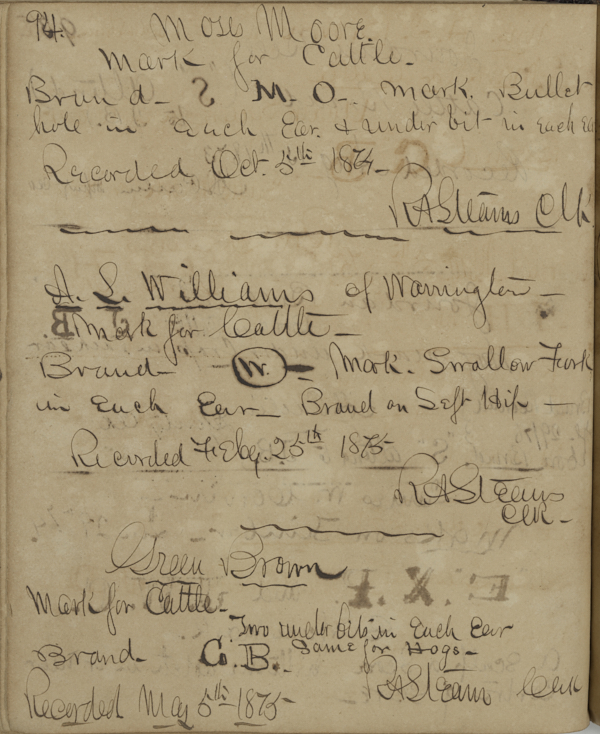 94.
Moses Moore.
Mark for Cattle.
Brand- S M. O-. Mark. Bullet
hole in Each Ear. & under bit in Each Ear
Recorded Oct. 5th 1874-
R A Stearns Clk
A. L. Williams of Warrington-
Mark for Cattle-
Brand- W.- Mark. Swallow Fork
in Each Ear- Brand on Left Hip-
Recorded Feby. 25th 1875-
R A Stearns
Clk-
Green Brown
Mark for Cattle-
Two under bits in Each Ear
Same for Hogs-
Brand- G. B.
Recorded May 5th 1875-
R A Stearns Clk